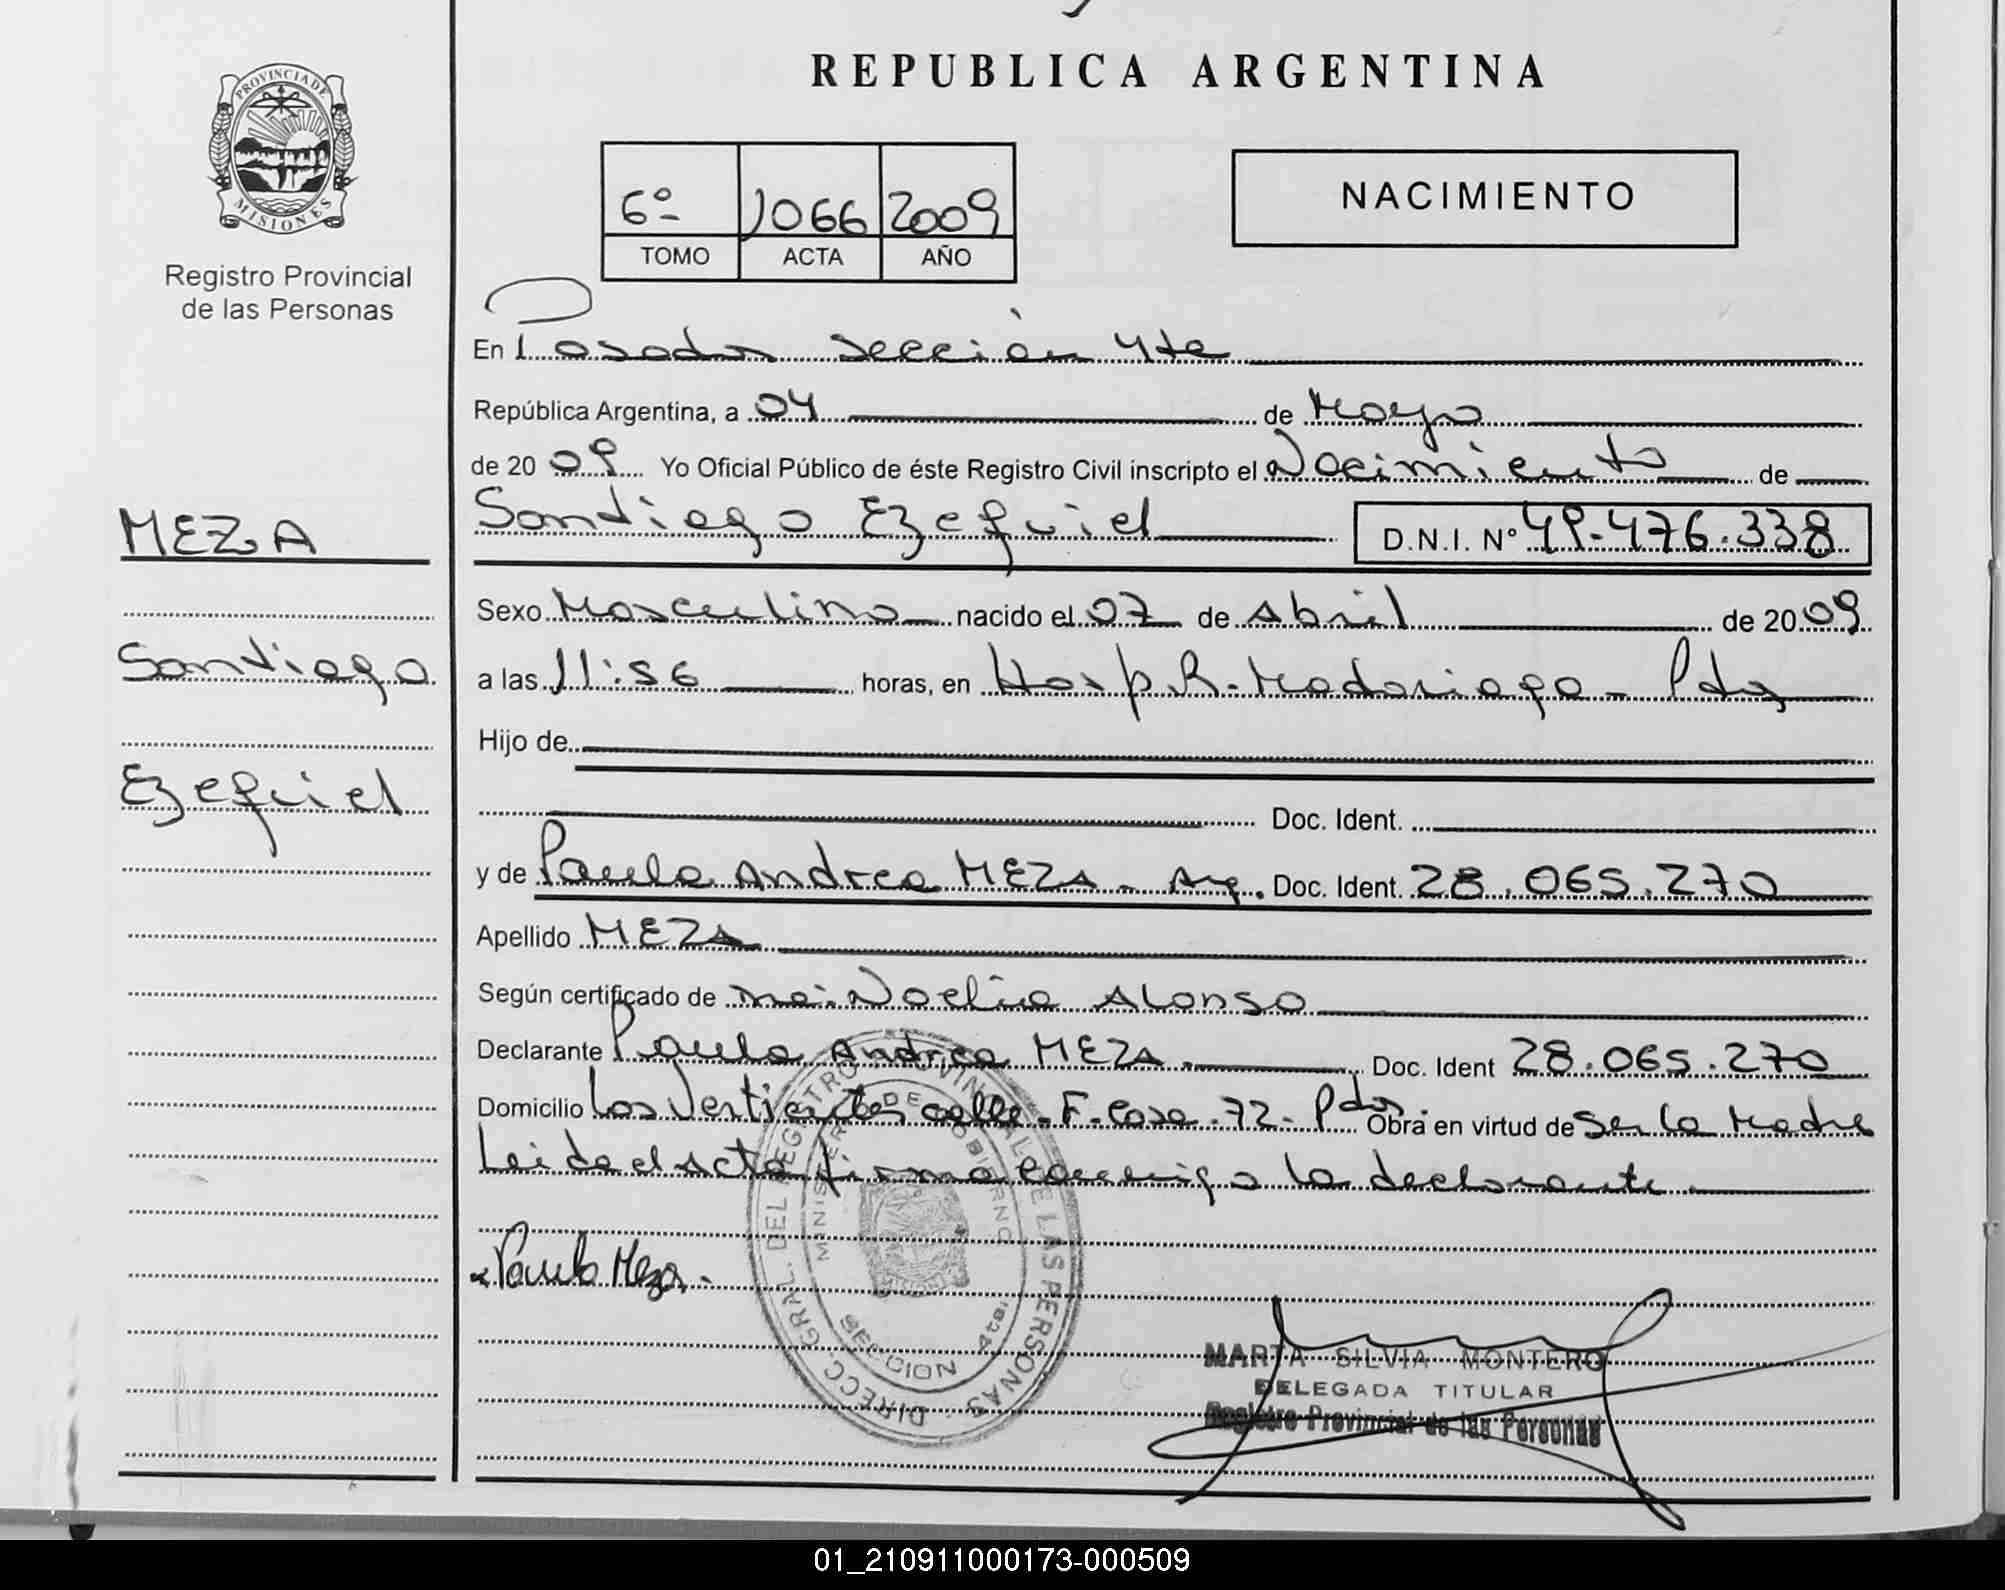 REPUBLICA ARGENTINA
PROVINCIA DE
MISIONES
Registro Provincial
de las Personas
6º 1066 2009
TOMO ACTA AÑO
NACIMIENTO
En Posadas sección 4ta
República Argentina, a 04 de Mayo
de 2009 Yo Oficial Público de éste Registro Civil inscripto el Nacimiento de
Santiago Ezequiel D.N.I. Nº 49.476.338
MEZA
Santiago
Ezequiel
Sexo Masculino nacido el 07 de Abril de 2009
a las 11:56 horas, en Hosp. R. Madariaga - Pdas
Hijo de
Doc. Ident.
y de Paula Andrea MEZA - Arg. Doc. Ident. 28.065.270
Apellido MEZA
Según certificado de Noelia Alonso
Declarante Paula Andrea MEZA Doc. Ident 28.065.270
Domicilio Los Vertientes calle - F. Casa. 72 - Pdas. Obra en virtud de ser la Madre
Leida el Acta firma conmigo la declarante
Paula Meza.
DIRECC. GRAL. DEL REGISTRO PROVINCIAL DE LAS PERSONAS
MINISTERIO DE GOBIERNO
SECCION 4ta
MARTA SILVIA MONTERO
DELEGADA TITULAR
Registro Provincial de las Personas
01_210911000173-000509